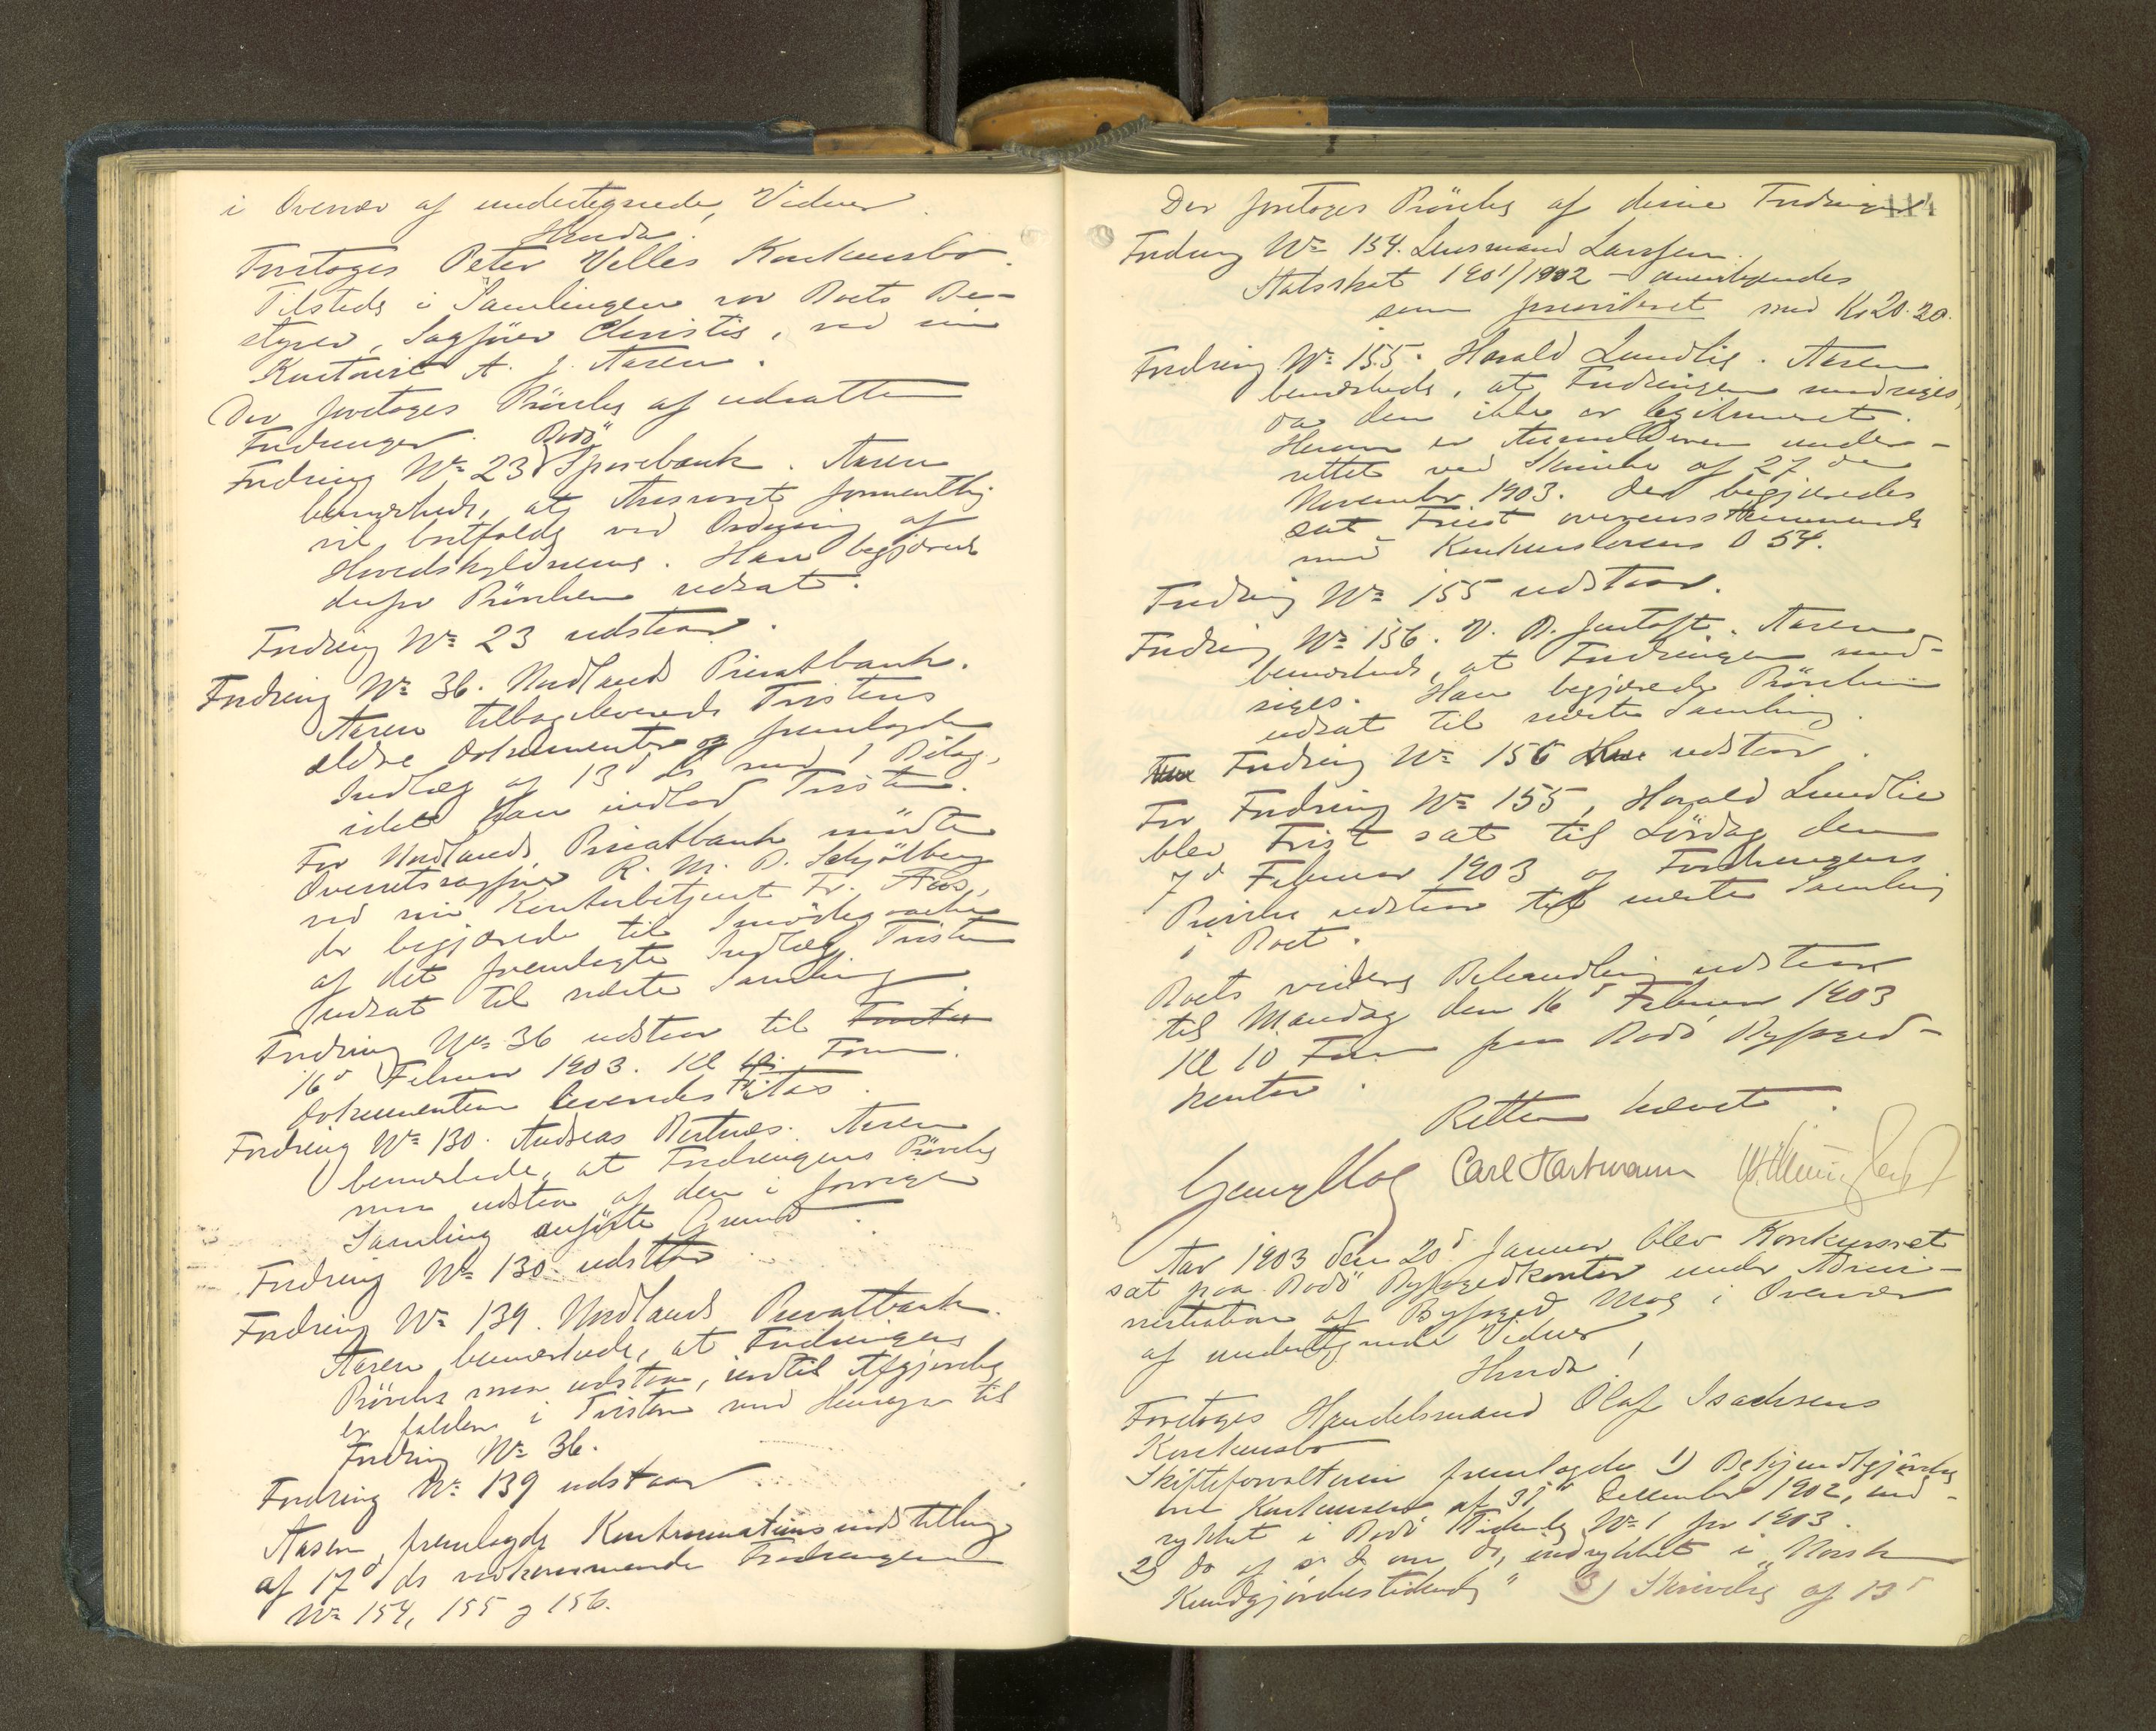 i Overvær af undertegnede Vidner.
Hvorda:
Foretoges Peter Velles Konkursbo.
Tilstede i Samlingen var Boets Be-
styrer, Sagfører Christie, ved sin
Kontorist A. J. Aasen.
Der foretoges Prövelse af udsatte
Fordringer.
Fordring No 23 Bodö Sparebank. Aasen
bemærkede, at Ansvaret formentlig
vil bortfalde ved Ordning af
Hovedskyldneren. Han begjærede
derfor Prövelsen udsat.
Fordring No 23 udstaar.
Fordring No 36. Nordlands Privatbank.
Aasen tilbageleverede Tvistens
ældre Dokumenter og fremlagde
Indlæg af 13d ds med 1 Bilag,
idet Han indlod Tvisten.
For Nordlands Privatbank mödte
Overretssagfører R. M. B. Schjölberg
ved sin Kontorbetjent Fr. Aas,
der begjærede til Imödegaaelse
af det fremlagte Indlæg Tvisten
udsat til næste Samling.
Fordring No 36 udstaar til
16d Februar 1903. Kl 10 Form.
Dokumenterne leveredes Fr. Aas.
Fordring No 130. Andreas Bertnæs. Aasen
bemærkede, at Fordringens Prövelse
maa udstaa af den i forrige
Samling anförte Grund.
Fordring No 130 udstaar
Fordring No 139. Nordlands Privatbank.
Aasen bemærkede, at Fordringens
Prövelse maa udstaa, indtil Afgjørelse
er falden i Tvisten med Hensyn til
Fordring No 36.
Fordring No 139 udstaar.
Aasen fremlagde Konkursmasseindstilling
af 17d ds vedkommende Fordringerne
No 154, 155 og 156.
Der foretoges Prövelse af disse Fordringer
114
Fordring No 154. Lensmand Larssen.
Statsskat 1901/1902 - anerkjendes
som prioriteret med Kr 20.20.
Fordring No 155. Harald Lundlie. Aasen
bemærkede, at Fordringen modsiges,
da den ikke er legitimeret.
Herom er Anmelderen under-
rettet ved Skrivelse af 27de
November 1903. Der begjæredes
sat Frist overensstemmende
med Konkurslovens § 54.
Fordring No 155 udstaar.
Fordring No 156. V. B. Jentoft. Aasen
bemærkede, at Fordringen mod-
siges. Han begjærede Prövelsen
udsat til næste Samling.
Fordring No 156 udstaar.
For Fordring No 155, Harald Lundlie
blev Frist sat til Lördag den
7d Februar 1903 og Fordringens
Prövelse udstaar til næste Samling
i Boet.
Boets videre Behandling udstaar
til Mandag den 16d Februar 1903
Kl 10 Form paa Bodö Byfoged-
kontor.
Retten hævet.
Georg Moe Carl Hartmann
Aar 1903 den 20d Januar blev Konkursret
sat paa Bodö Byfogedkontor under Admi-
nistration af Byfoged Moe i Overvær
af undertegnede Vidner,
Hvorda!
Foretoges Handelsmand Olaf Isachsens
Konkursbo
Skifteforvalteren fremlagde 1) Bekjendtgjørelse
om Konkursen af 31d December 1902, ind-
rykket i Bodö Tidende No 1 for 1903.
2) do af s. d. om do, indrykket i "Norsk
Kundgjørelsestidende" 3) Skrivelse af 13d